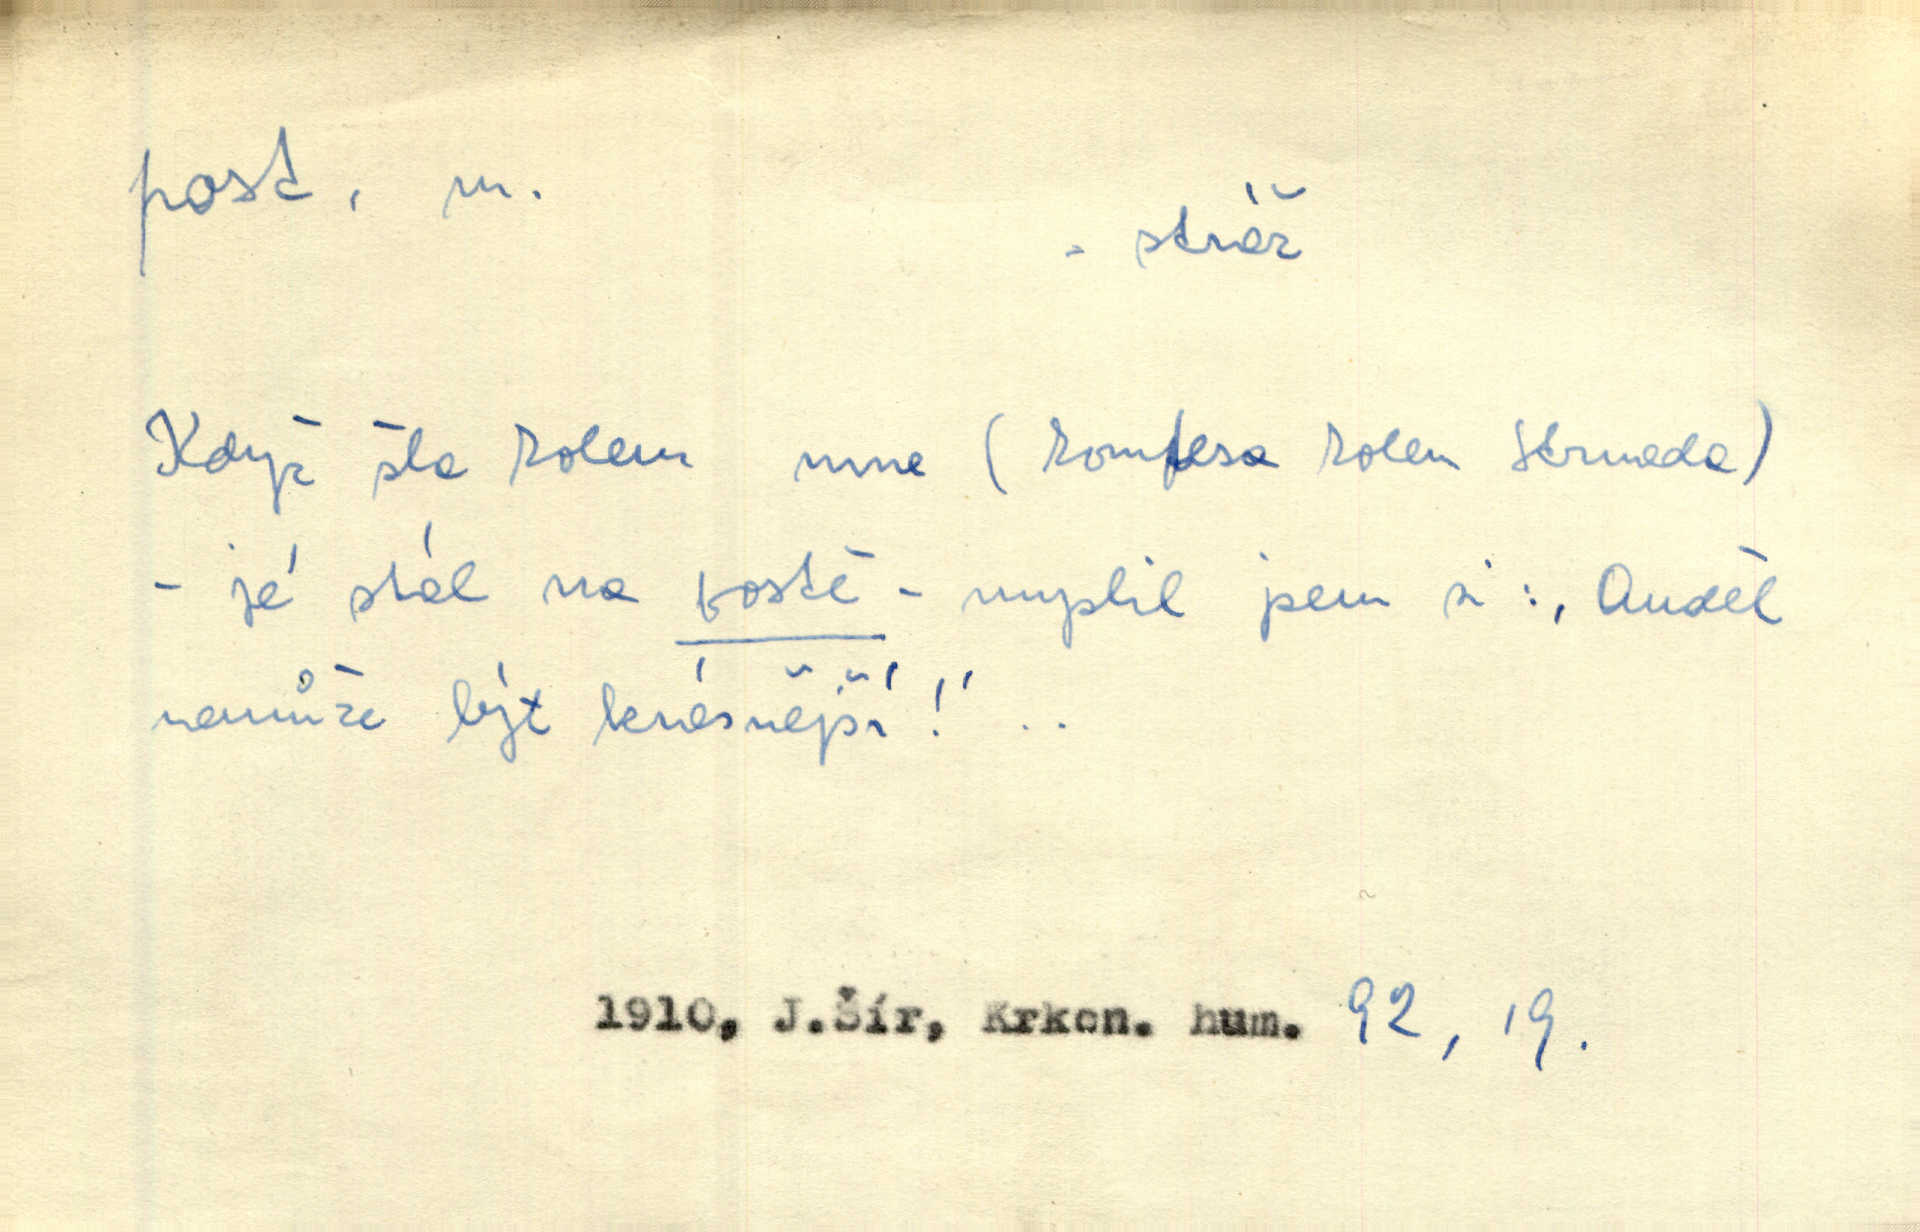 post, m.
- stráž
Když šla kolem mne (komtesa kolem Štrmada)
- já stál na postě - myslil jsem si: ‚Anděl
nemůže být krásnější!' ..
1910, J.Šír, Krkon. hum. 92, 19.